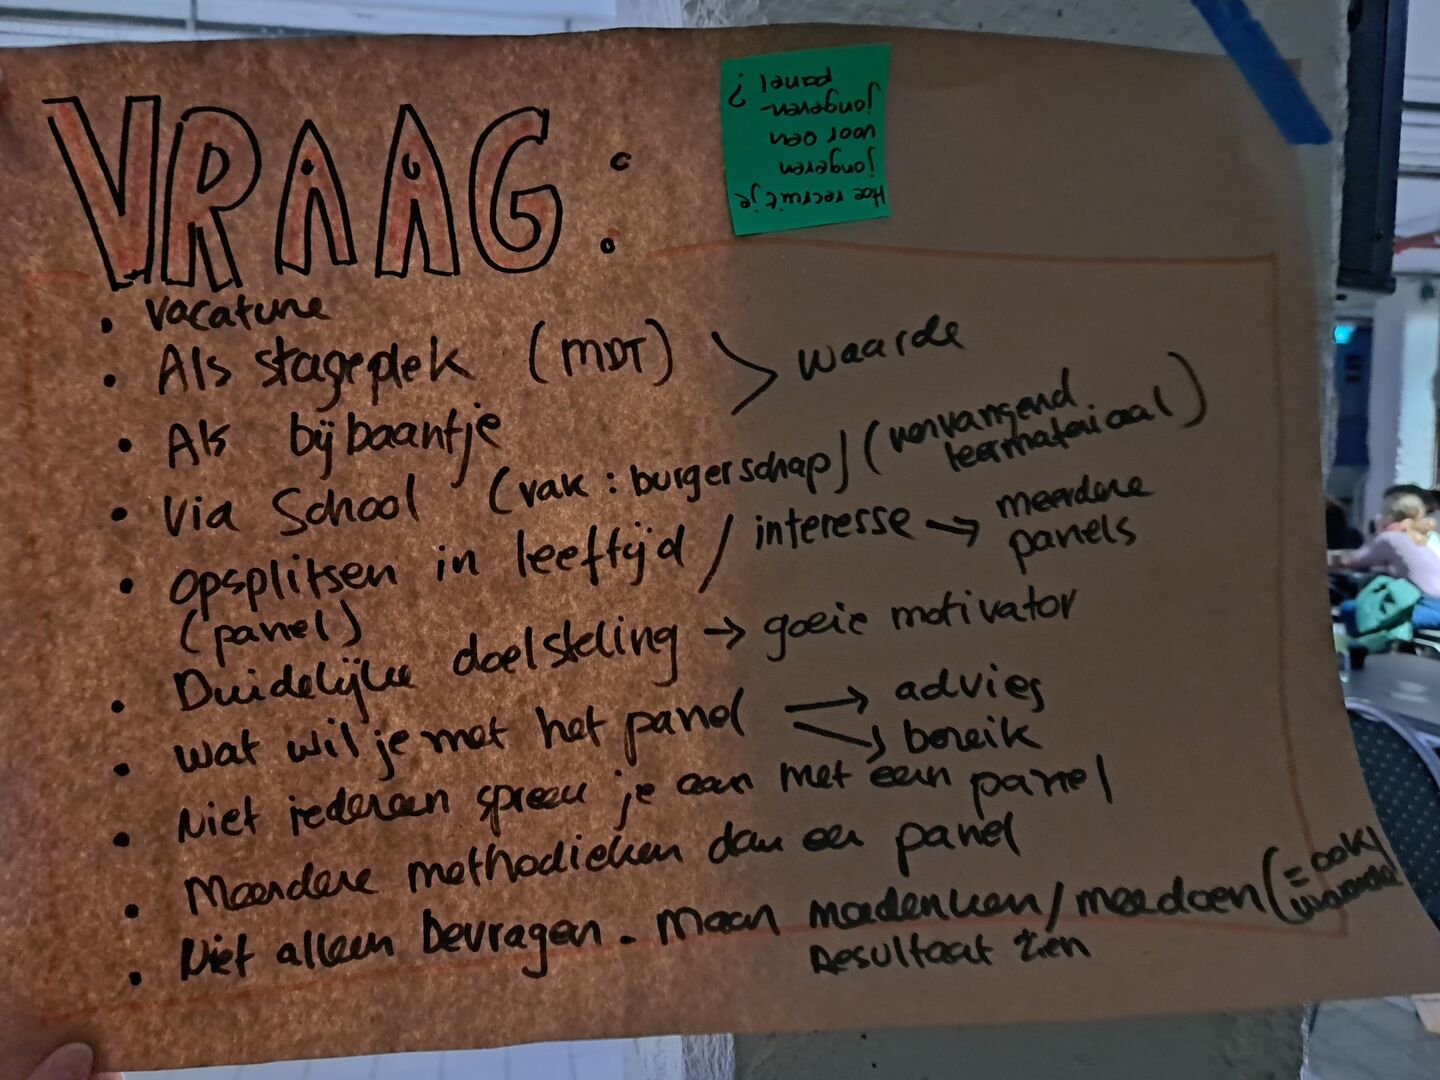 VRAAG:
Hoe recruit je
jongeren
voor een
jongeren-
panel ?
• vacature
• Als stageplek (MDT) > waarde
• Als bijbaantje
• Via School (vak: burgerschap) (vervangend
leermateriaal)
• opsplitsen in leeftijd / interesse → meerdere
(panel) panels
• Duidelijke doelstelling → goeie motivator
• wat wil je met het panel → advies
→ bereik
• Niet iedereen spreek je aan met een panel
• Meerdere methodieken dan een panel
• Niet alleen bevragen - maar meedenken / meedoen (= ook
waarde)
resultaat zien